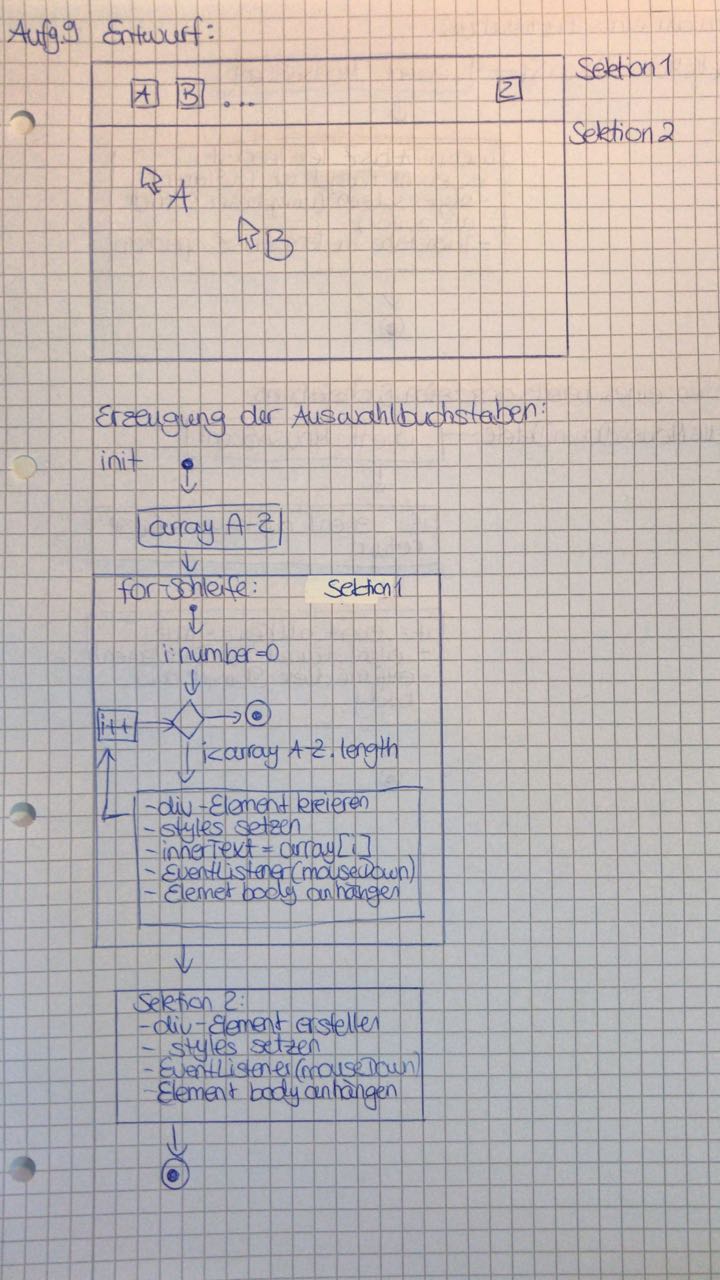 Aufg.9 Entwurf:
Sektion 1
A B ... Z
Sektion 2
A
B
Erzeugung der Auswahlbuchstaben:
init
array A-Z
for-Schleife: Sektion 1
i:number=0
i++
i<array A-Z.length
-div-Element kreieren
-styles setzen
-innerText = array[i]
-EventListener(mouseDown)
-Elemet body anhängen
Sektion 2:
-div-Element erstellen
- styles setzen
-EventListener(mouseDown)
-Element body anhängen